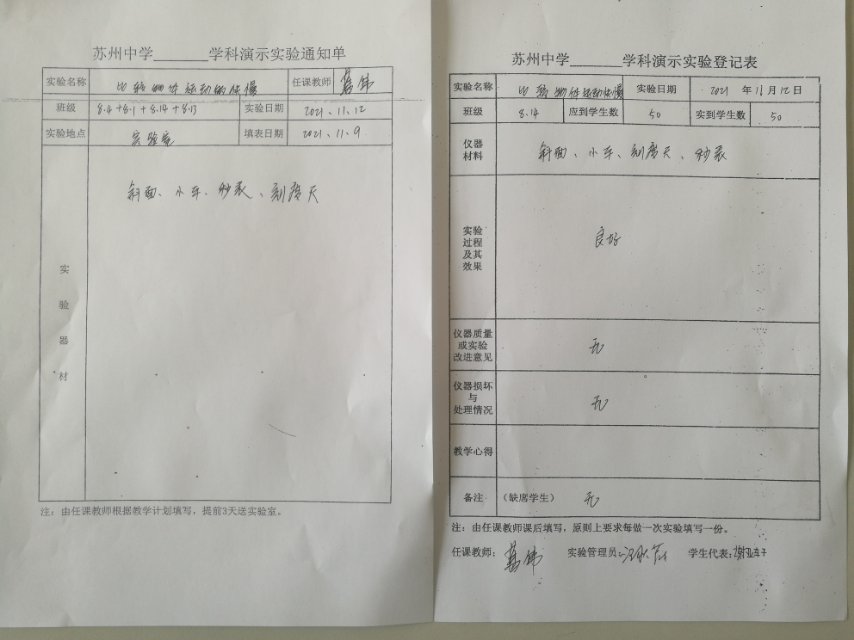 苏州中学______学科演示实验通知单
实验名称 比较物体运动的快慢 任课教师
班级 8.4+8.1+8.14+8.13 实验日期 2021、11、12
实验地点 实验室 填表日期 2021、11、9
实验器材
斜面、小车、秒表、刻度尺
注：由任课教师根据教学计划填写，提前3天送实验室。
苏州中学______学科演示实验登记表
实验名称 比较物体运动的快慢 实验日期 2021 年 11 月 12 日
班级 8.14 应到学生数 50 实到学生数 50
仪器材料 斜面、小车、刻度尺、秒表
实验过程及其效果 良好
仪器质量或实验改进意见 无
仪器损坏与处理情况 无
教学心得
备注 （缺席学生） 无
注：由任课教师课后填写，原则上要求每做一次实验填写一份。
任课教师： 实验管理员： 学生代表：